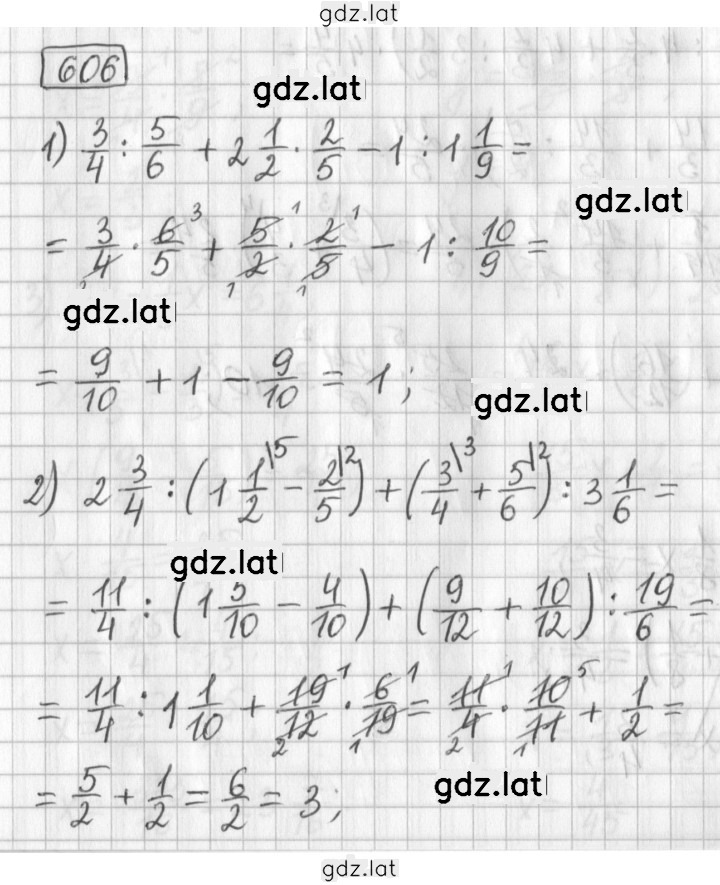 gdz.lat
606
gdz.lat
1) 3/4 : 5/6 + 2 1/2 · 2/5 - 1 : 1 1/9 =
gdz.lat
= 3/4 · 6/5 + 5/2 · 2/5 - 1 : 10/9 =
gdz.lat
= 9/10 + 1 - 9/10 = 1;
gdz.lat
2) 2 3/4 : (1 1/2 \5 - 2/5 \2) + (3/4 \3 + 5/6 \2) : 3 1/6 =
gdz.lat
= 11/4 : (1 5/10 - 4/10) + (9/12 + 10/12) : 19/6 =
= 11/4 : 1 1/10 + 19/12 · 6/19 = 11/4 · 10/11 + 1/2 =
= 5/2 + 1/2 = 6/2 = 3;
gdz.lat
gdz.lat